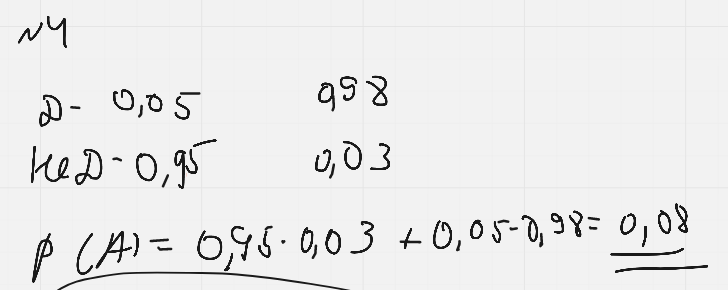 №4
Д - 0,05 0,98
Не Д - 0,95 0,03
P(A) = 0,95 · 0,03 + 0,05 · 0,98 = 0,08